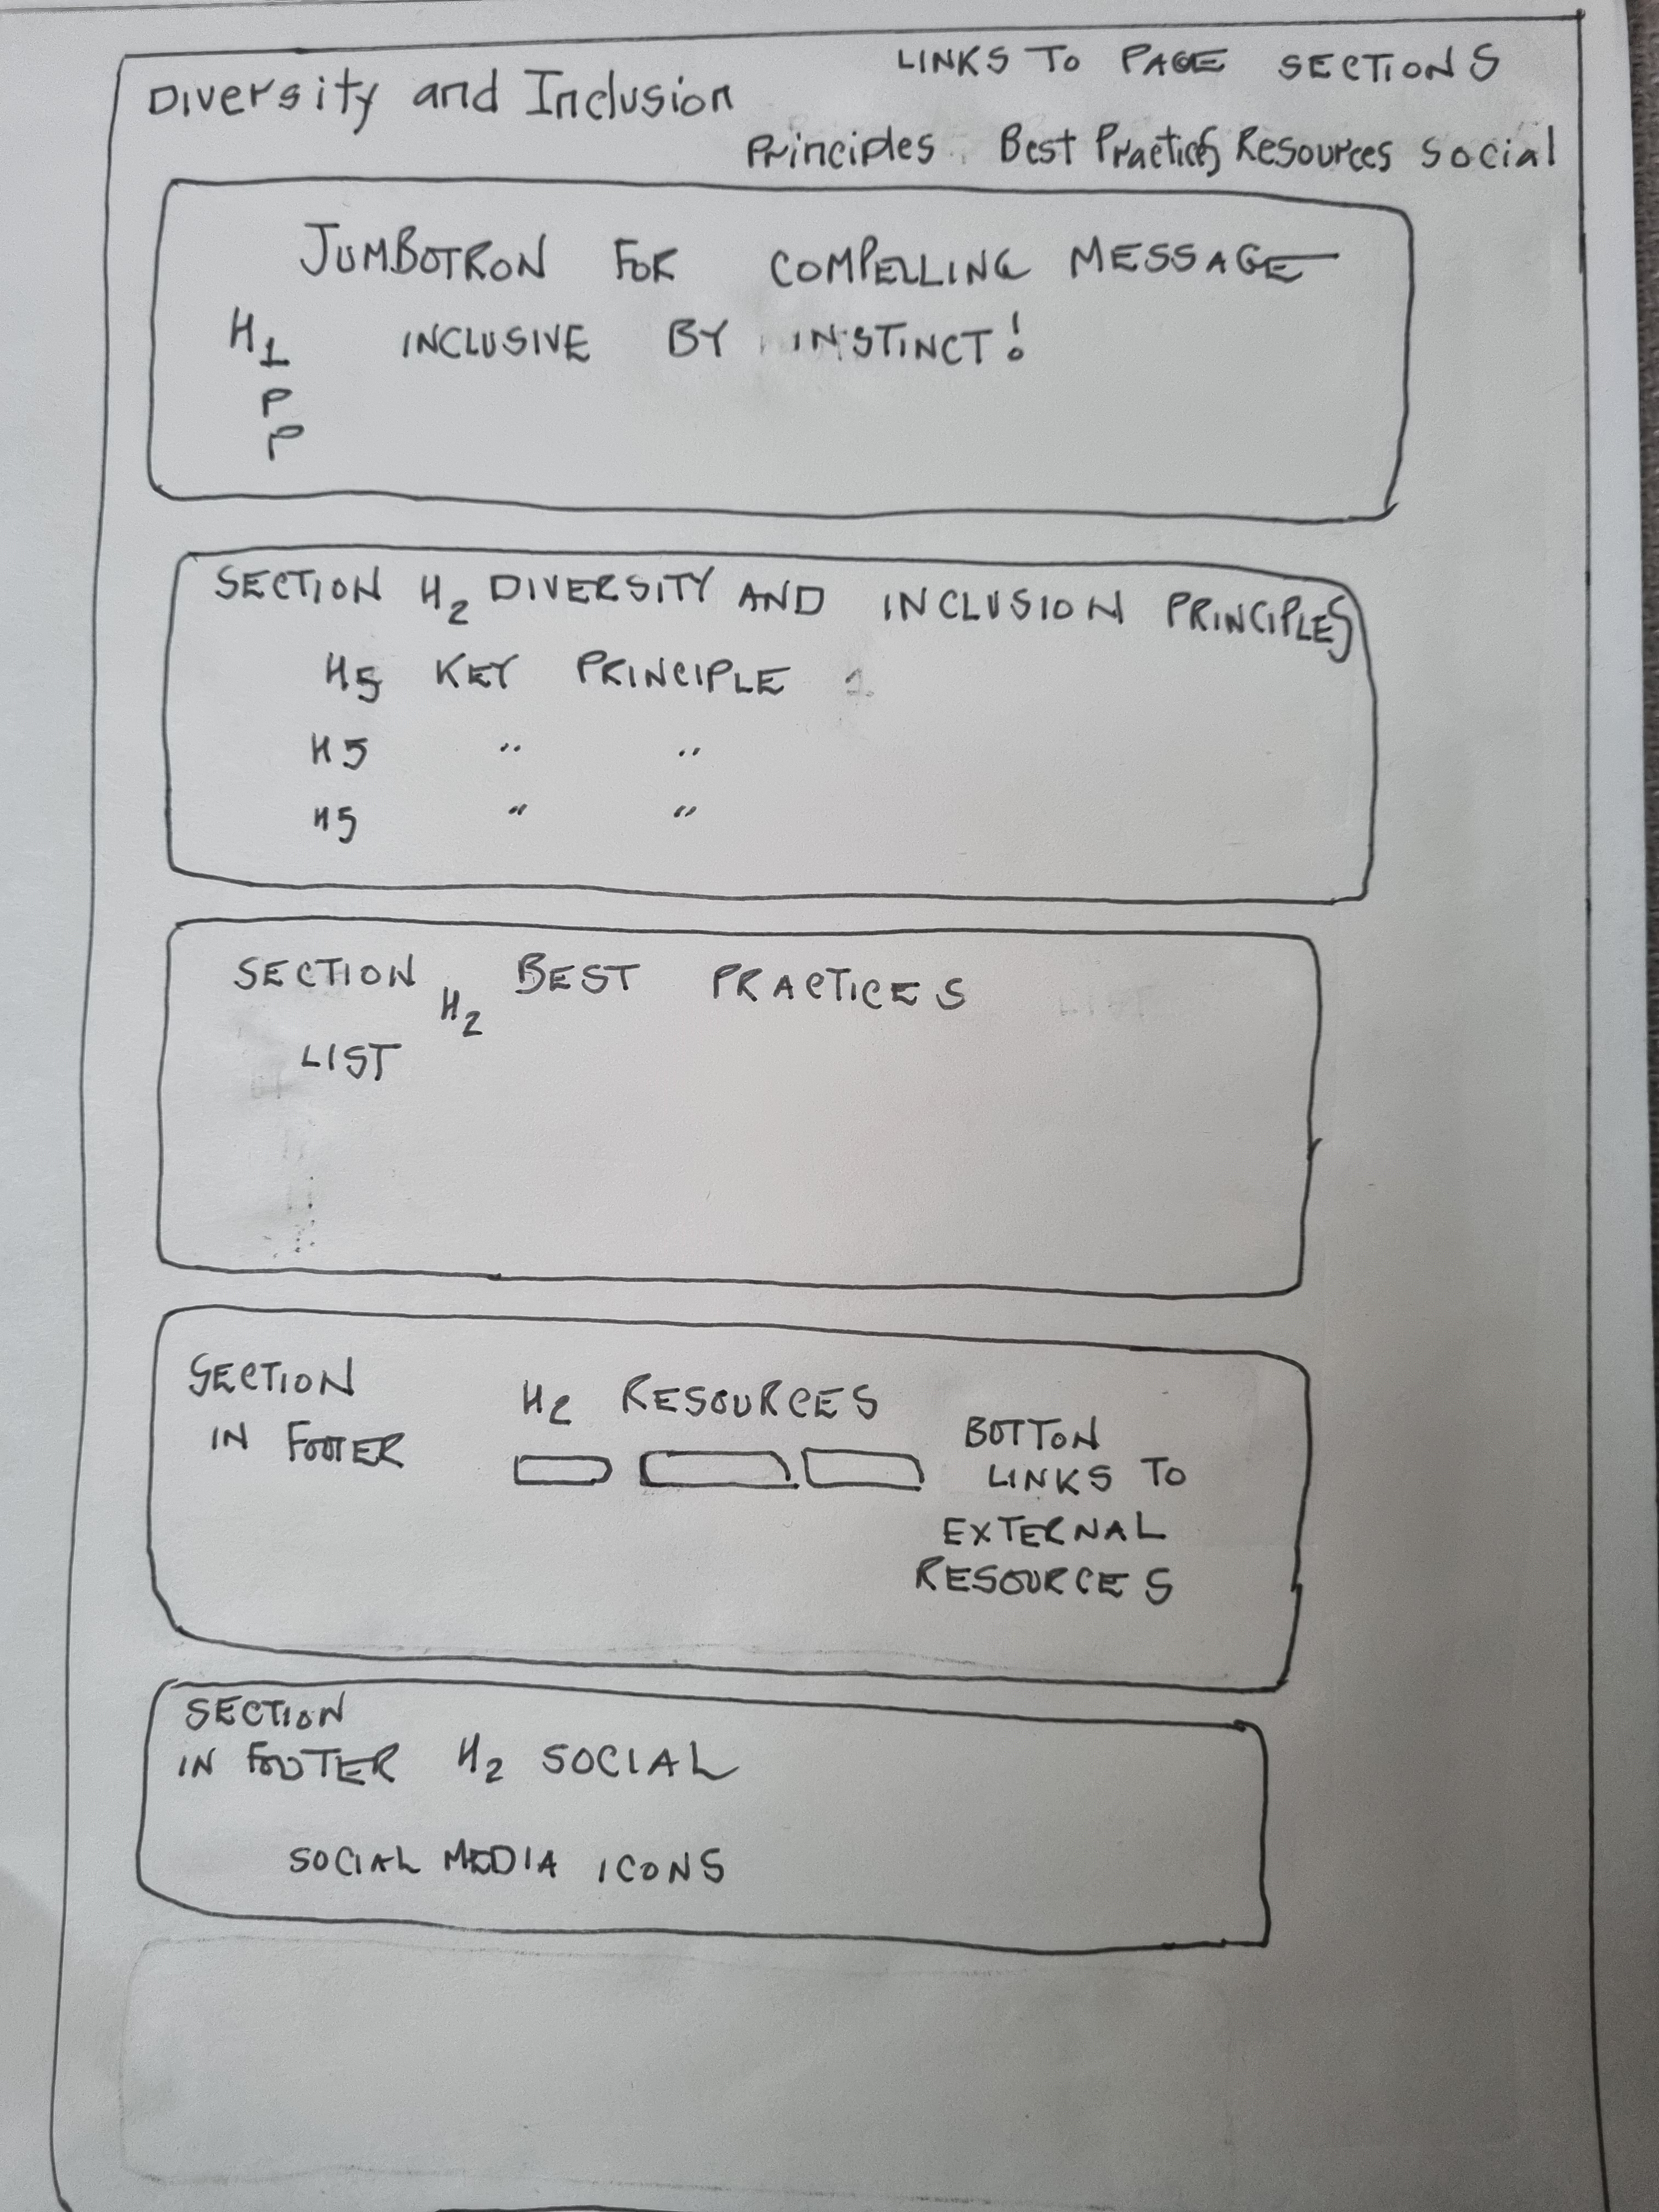 LINKS TO PAGE SECTIONS
Diversity and Inclusion
Principles Best Practices Resources Social
JUMBOTRON FOR COMPELLING MESSAGE
H1 INCLUSIVE BY INSTINCT!
P
P
SECTION H2 DIVERSITY AND INCLUSION PRINCIPLES
H5 KEY PRINCIPLE 1
H5 " "
H5 " "
SECTION H2 BEST PRACTICES
LIST
SECTION
IN FOOTER
H2 RESOURCES
BOTTON
LINKS TO
EXTERNAL
RESOURCES
SECTION
IN FOOTER H2 SOCIAL
SOCIAL MEDIA ICONS